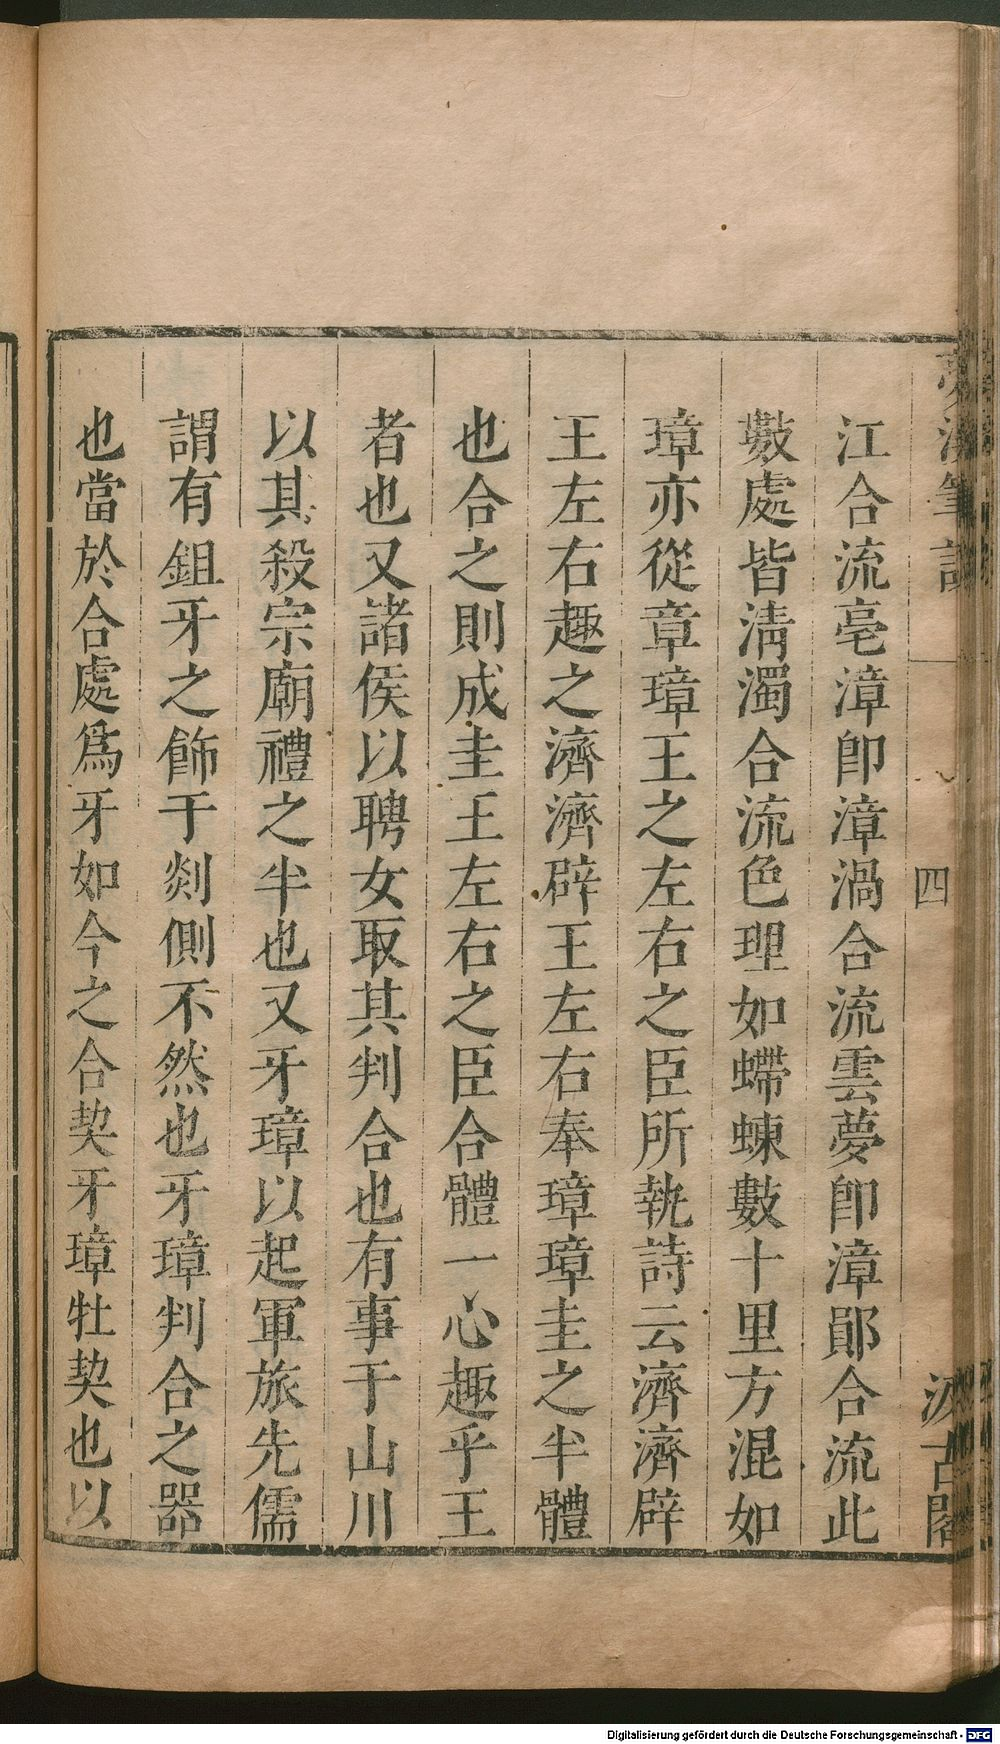 夢溪筆談
四
汲古閣
江合流亳漳卽漳渦合流雲夢卽漳鄖合流此
數處皆淸濁合流色理如螮蝀數十里方混如
璋亦從章璋王之左右之臣所執詩云濟濟辟
王左右趣之濟濟辟王左右奉璋璋圭之半體
也合之則成圭王左右之臣合體一心趣乎王
者也又諸侯以聘女取其判合也有事于山川
以其殺宗廟禮之半也又牙璋以起軍旅先儒
謂有鉏牙之飾于剡側不然也牙璋判合之器
也當於合處爲牙如今之合契牙璋牡契也以
Digitalisierung gefördert durch die Deutsche Forschungsgemeinschaft - DFG